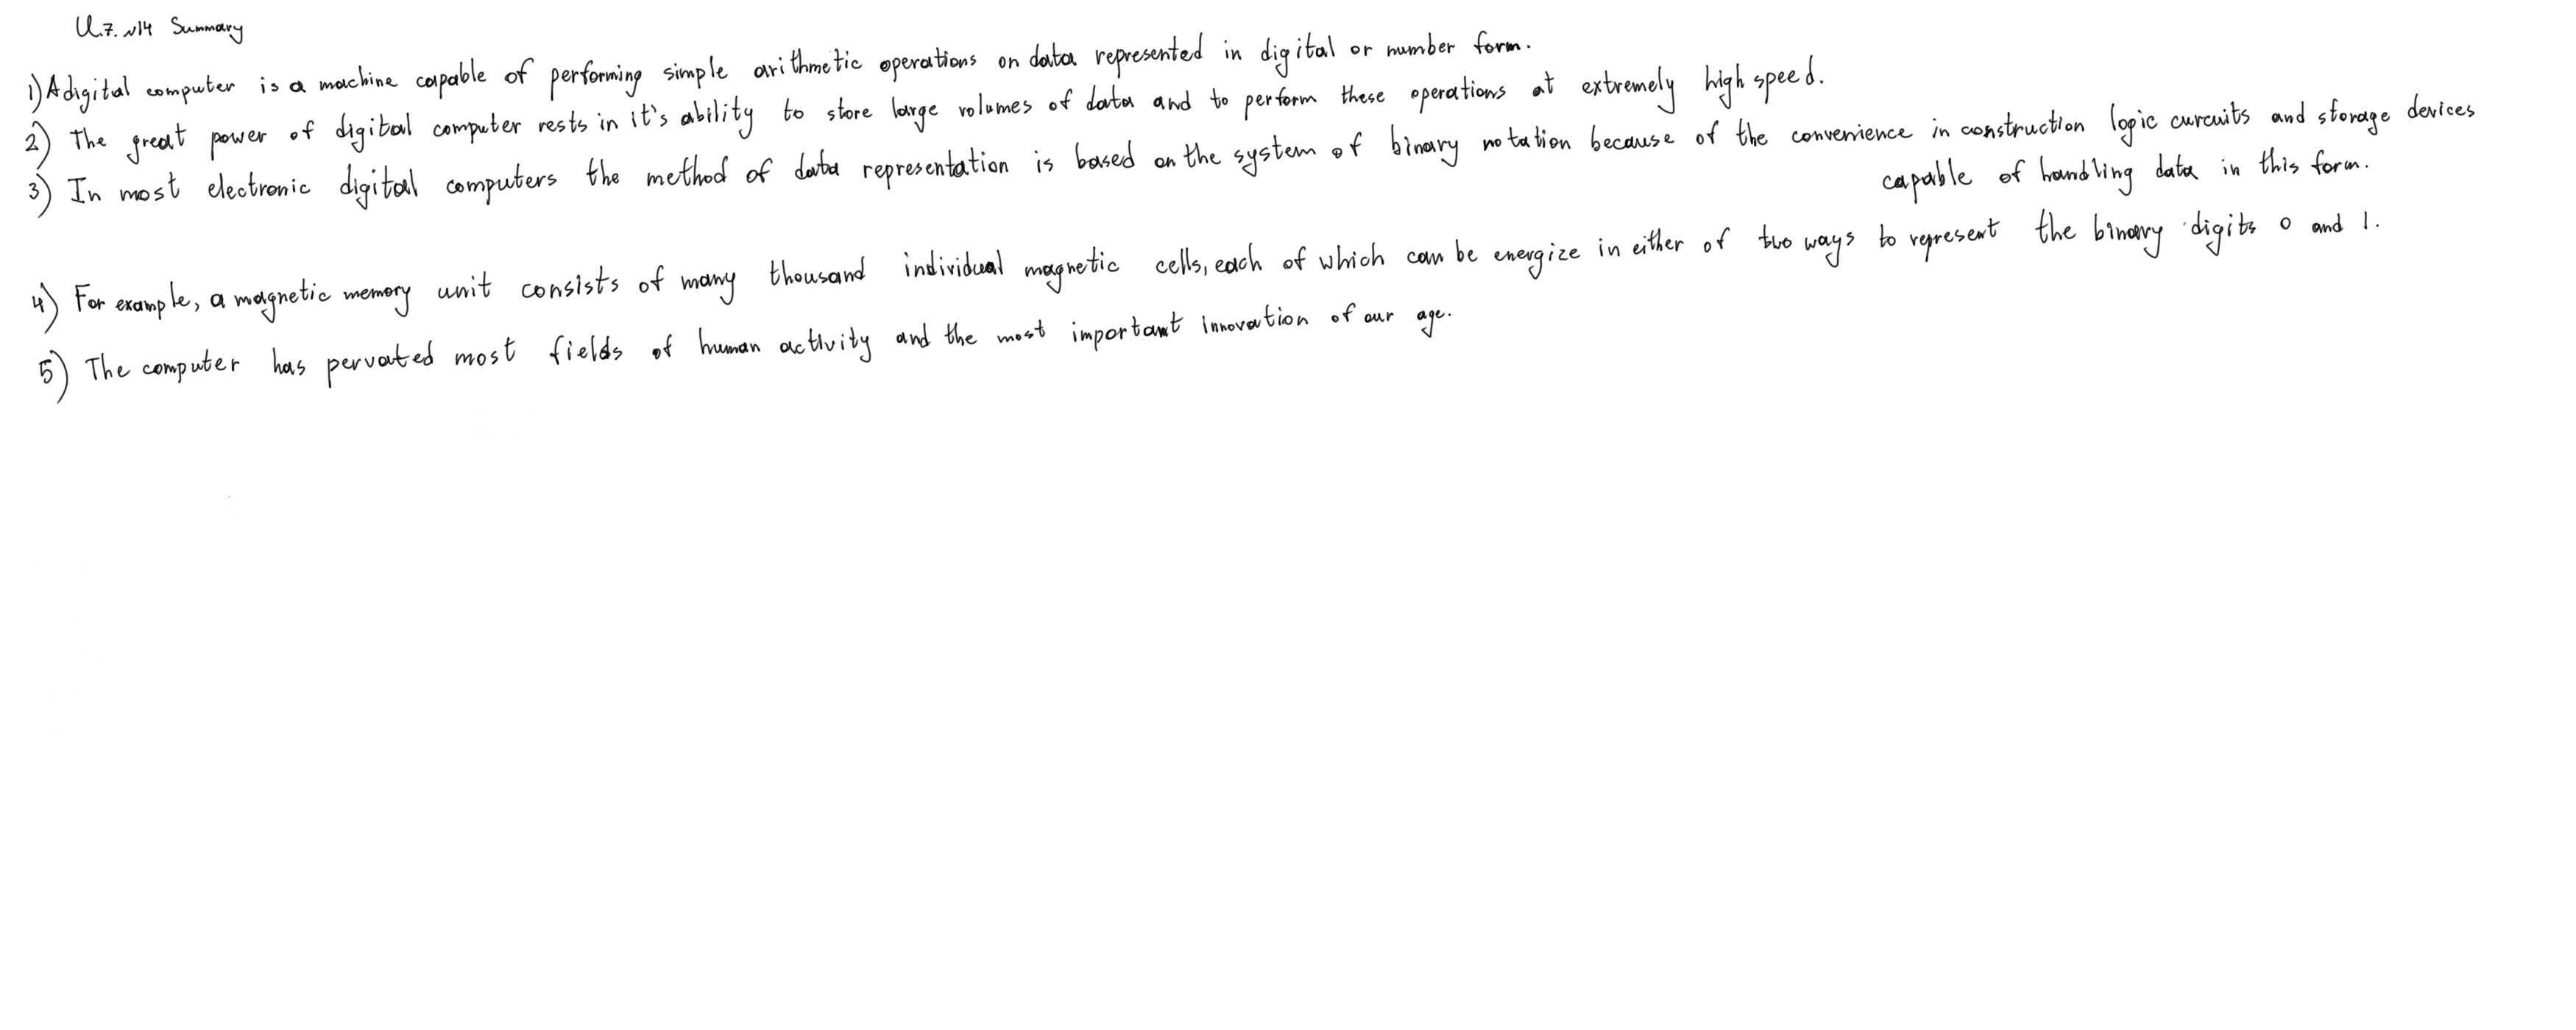 U.7. №14 Summary
1) A digital computer is a machine capable of performing simple arithmetic operations on data represented in digital or number form.
2) The great power of digital computer rests in it's ability to store large volumes of data and to perform these operations at extremely high speed.
3) In most electronic digital computers the method of data representation is based on the system of binary notation because of the convenience in construction logic curcuits and storage devices
capable of handling data in this form.
4) For example, a magnetic memory unit consists of many thousand individual magnetic cells, each of which can be energize in either of two ways to represent the binary digits 0 and 1.
5) The computer has pervated most fields of human activity and the most important innovation of our age.